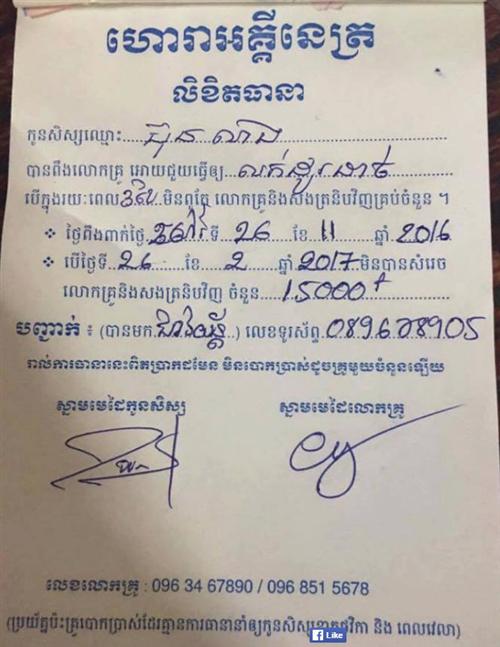 ហោរាអគ្គីនេត្រ
លិខិតធានា
កូនសិស្សឈ្មោះ
បានពឹងលោកគ្រូ អោយជួយធ្វើឲ្យ លក់ដូរដាច់
បើក្នុងរយៈពេល 3ខែ មិនពូកែ លោកគ្រូនិងសងត្រឡប់វិញគ្រប់ចំនួន ។
❖ ថ្ងៃពឹងពាក់ថ្ងៃ សៅរ៍ ទី 26 ខែ 11 ឆ្នាំ 2016
❖ បើថ្ងៃទី 26 ខែ 2 ឆ្នាំ 2017 មិនបានសំរេច
លោកគ្រូនិងសងត្រនិបវិញ ចំនួន 15000
បញ្ជាក់ ៖ (បានមក ) លេខទូរស័ព្ទ 089678905
រាល់ការធានានេះពិតប្រាកដមែន មិនបោកប្រាស់ដូចគ្រូមួយចំនួនឡើយ
ស្នាមមេដៃកូនសិស្ស ស្នាមមេដៃលោកគ្រូ
លេខលោកគ្រូ : 096 34 67890 / 096 851 5678
(ប្រយ័ត្នប៉ះគ្រូបោកប្រាស់ដែរគ្មានការធានានាំឲ្យកូនសិស្ស និង ពេលវេលា)
Like